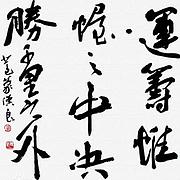 運籌帷
幄之中决
勝千里之外